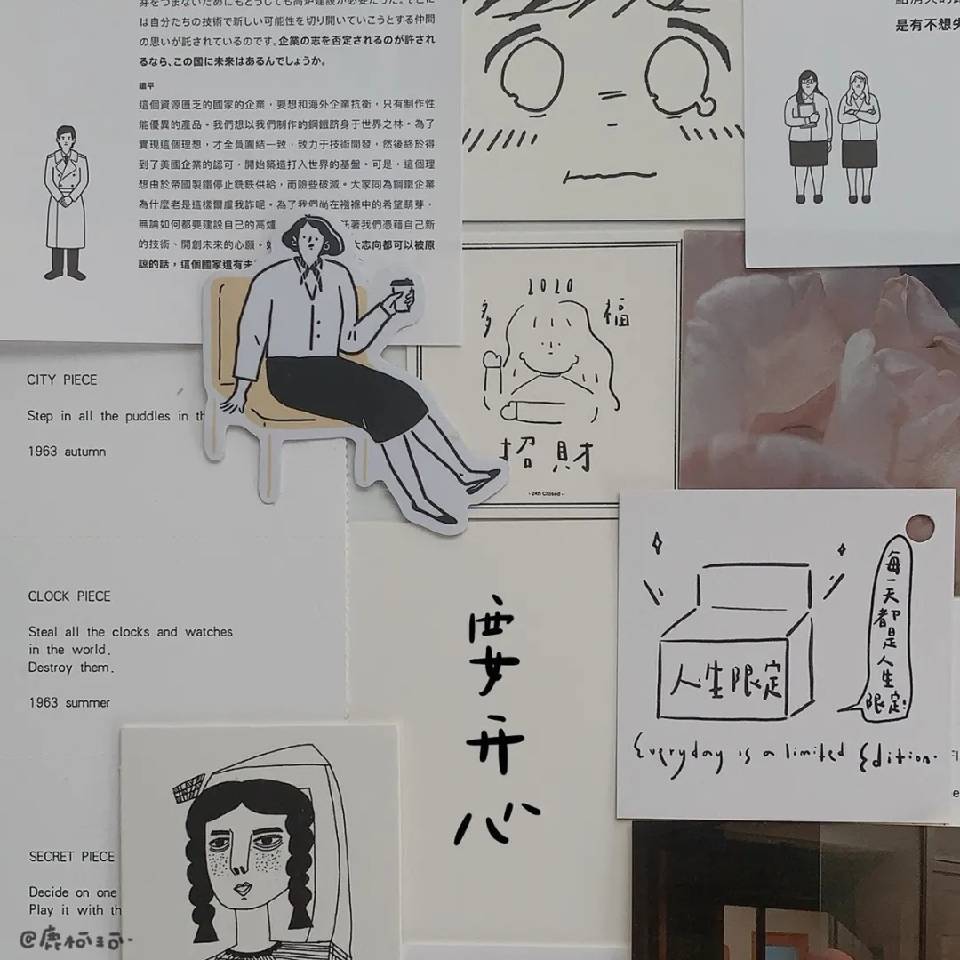 身をつまないためにもどうしても高炉建設が必要だった。そこに
は自分たちの技術で新しい可能性を切り開いていこうとする仲間
の思いが託されているのです。企業の志を否定されるのが許され
るなら、この国に未来はあるんでしょうか。
這個資源匱乏的國家的企業，要想和海外企業抗衡，只有制作性
能優異的產品。我們想以我們制作的鋼鐵躋身于世界之林。為了
實現這個理想，才全員團結一致，致力于技術開發，然後終於得
到了美國企業的認可，開始築造打入世界的基盤。可是，這個理
想由於帝國製鐵停止銑鉄供給，而險些破滅。大家同為鋼鐵企業
為什麼老是這樣爾虞我詐呢。為了我們尚在襁褓中的希望萌芽，
無論如何都要建設自己的高爐
著我們憑藉自己新
的技術、開創未來的心願。
大志向都可以被原
諒的話，這個國家還有未
是有不想失
CITY PIECE
Step in all the puddles in th
1963 autumn
1010
多 福
招 財
每一天都是人生限定!
人生限定
Everyday is a limited Edition.
CLOCK PIECE
Steal all the clocks and watches
in the world.
Destroy them.
1963 summer
要
开
心
SECRET PIECE
Decide on one
Play it with th